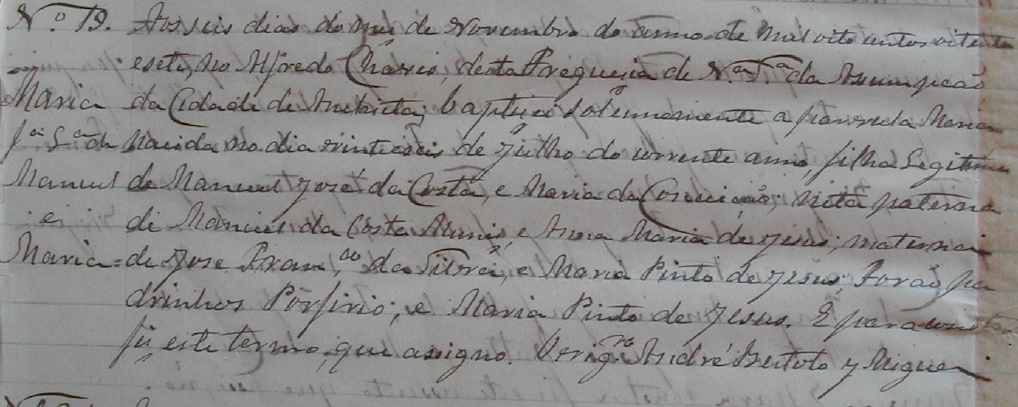 Nº 19. Aos seis dias do mes de Novembro do anno de mil oito centos oitenta
e sete, no Alfredo Chaves, desta Freguesia de N.ª S.ª da Assumpção
Maria da Cidade de Anchieta; baptisei solemnemente a parvula Maria
fª Lª de nascida no dia vinte e seis de Julho do corrente anno, filha Legitima
Manuel de Manuel José da Costa, e Maria da Conceição; neta paterna
e de Manuel da Costa Nunes, e Anna Maria de Jesus; materna
Maria = de Jose Fran.co da Silva, e Maria Pinto de Jesus. Forão pa
drinhos Porfirio; e Maria Pinto de Jesus. E para constar
fiz este termo, que assigno. O Vigrº André Bertolo y